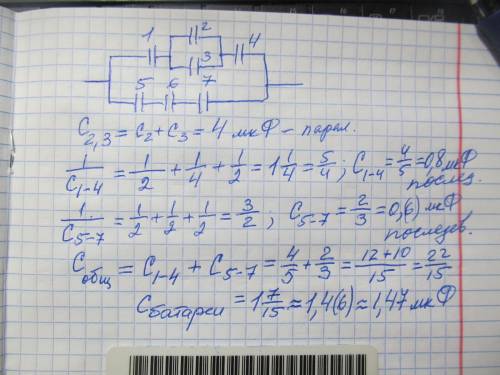 1 2 3 4
5 6 7
C₂,₃ = C₂ + C₃ = 4 мкФ – парал.
1/C₁₋₄ = 1/2 + 1/4 + 1/2 = 1 1/4 = 5/4; C₁₋₄ = 4/5 = 0,8 мкФ
послед.
1/C₅₋₇ = 1/2 + 1/2 + 1/2 = 3/2; C₅₋₇ = 2/3 = 0,(6) мкФ
последов.
Cобщ = C₁₋₄ + C₅₋₇ = 4/5 + 2/3 = (12+10)/15 = 22/15
Cбатареи = 1 7/15 ≈ 1,4(6) ≈ 1,47 мкФ